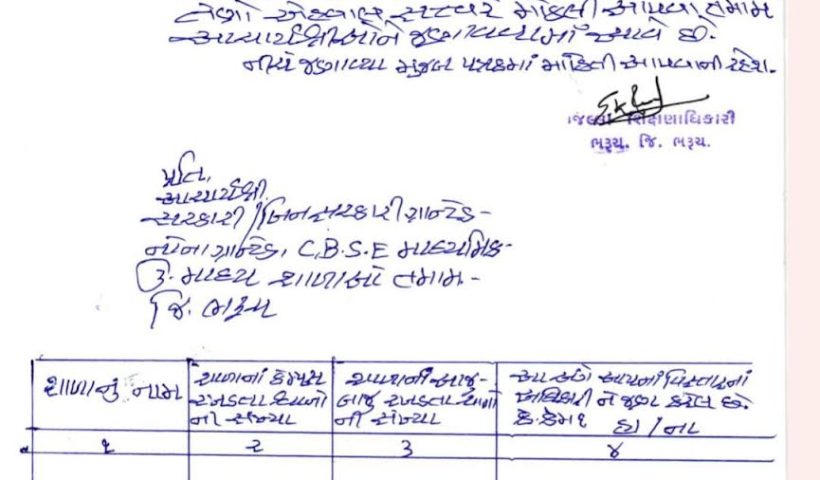 તેની એકવાર સત્વરે માહિતી આપવા તમામ
આચાર્યશ્રીઓને જણાવવામાં આવે છે.
નીચે જણાવ્યા મુજબ પત્રકમાં માહિતી આપવાની રહેશે.
જિલ્લા શિક્ષણાધિકારી
ભરૂચ. જિ. ભરૂચ.
પ્રતિ,
આચાર્યશ્રી,
સરકારી / બિનસરકારી ગ્રાન્ટેડ -
નોન ગ્રાન્ટેડ, C.B.S.E માધ્યમિક -
ઉ. માધ્ય શાળાઓ તમામ -
જિ. ભરૂચ
શાળાનું નામ
શાળાનાં કેમ્પસ
રખડતા શ્વાનો
ની સંખ્યા
શાળાની આજુ-
બાજુ રખડતા શ્વાનો
ની સંખ્યા
આ અંગે આપની વિસ્તારનાં
અધિકારી ને જાણ કરેલ છે.
કે કેમ ?
હા / ના
૧ ૨ ૩ ૪